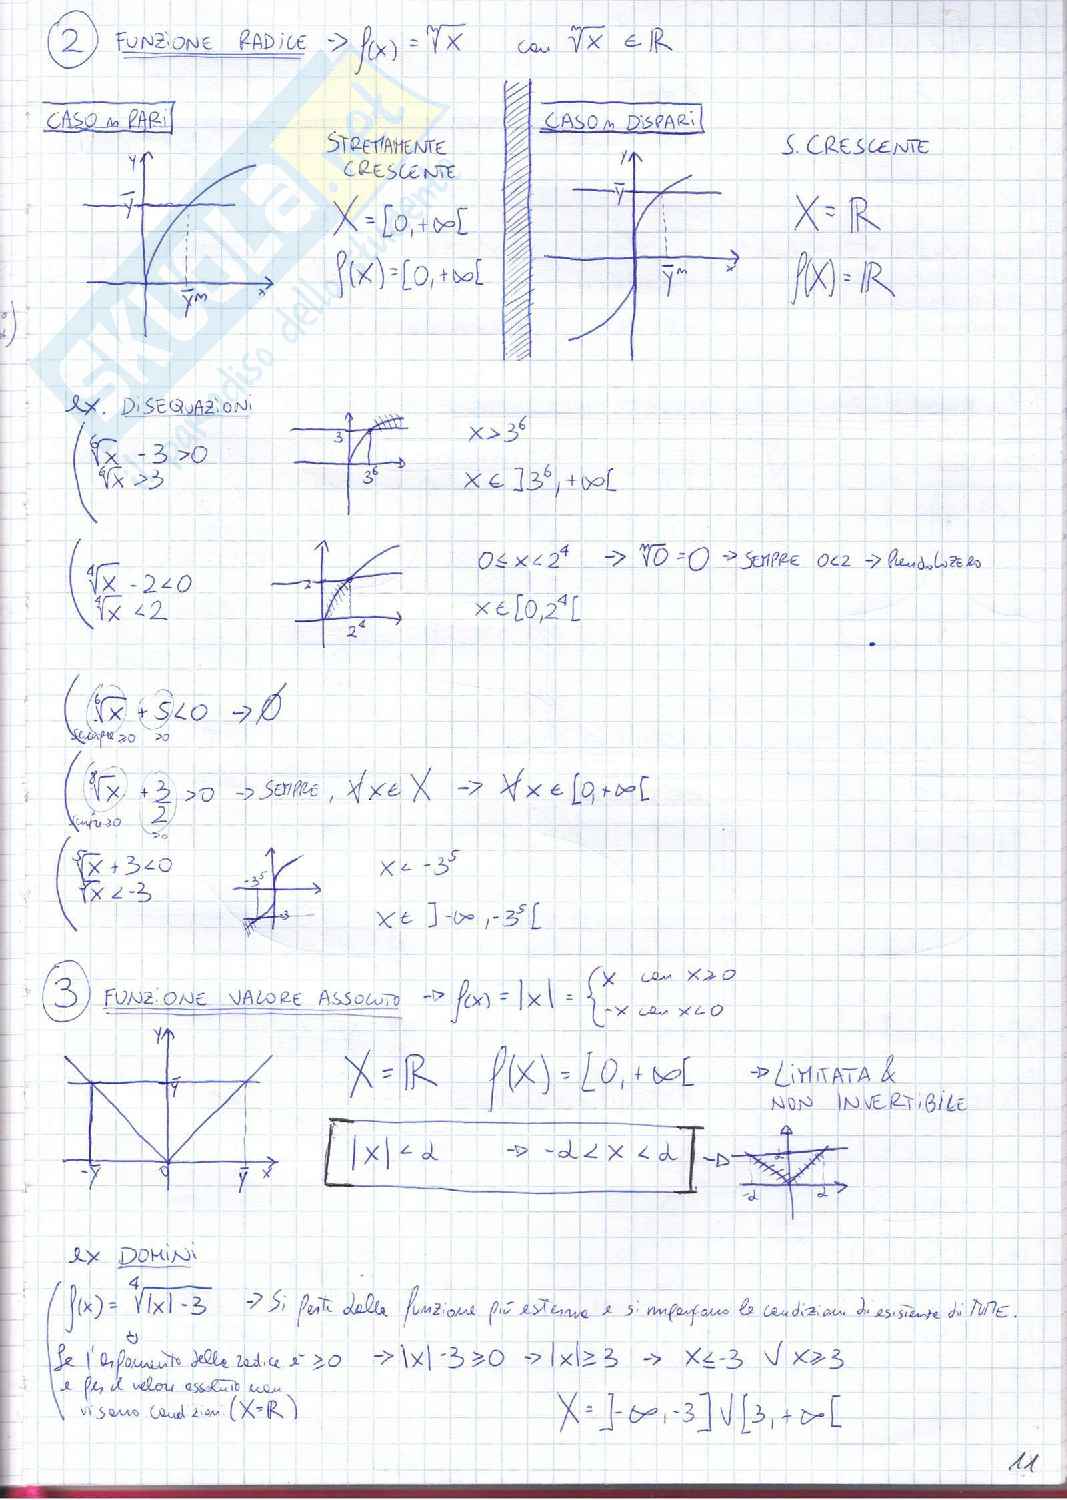 2 FUNZIONE RADICE → f(x) = ⁿ√x con ⁿ√x ∈ ℝ
CASO n PARI
STRETTAMENTE
CRESCENTE
y
ȳ
ȳⁿ
x
X = [0, +∞[
f(X) = [0, +∞[
CASO n DISPARI
S. CRESCENTE
y
ȳ
ȳⁿ
x
X = ℝ
f(X) = ℝ
ex. DISEQUAZIONI
⁶√x - 3 > 0
⁶√x > 3
3
3⁶
x > 3⁶
x ∈ ]3⁶, +∞[
⁴√x - 2 < 0
⁴√x < 2
2
2⁴
0 ≤ x < 2⁴ → ⁿ√0 = 0 → SEMPRE 0<2 → Prendo lo ZERO
x ∈ [0, 2⁴[
⁶√x + 5 < 0 → ∅
sempre ≥0 >0
⁸√x + 3/2 > 0 → SEMPRE, ∀x ∈ X → ∀x ∈ [0, +∞[
sempre ≥0 >0
⁵√x + 3 < 0
⁵√x < -3
-3⁵
-3
x < -3⁵
x ∈ ]-∞, -3⁵[
3 FUNZIONE VALORE ASSOLUTO → f(x) = |x| = { x con x ≥ 0
-x con x < 0
y
ȳ
-ȳ
0
ȳ
x
X = ℝ f(X) = [0, +∞[ → LIMITATA &
NON INVERTIBILE
|x| < d → -d < x < d →
d
-d
d
ex DOMINI
f(x) = ⁴√|x| - 3 → Si parte dalla funzione più esterna e si impongono le condizioni di esistenza di TUTTE.
Se l'argomento della radice è ≥ 0 → |x| - 3 ≥ 0 → |x| ≥ 3 → x ≤ -3 ∨ x ≥ 3
e per il valore assoluto non
vi sono condizioni (X = ℝ)
X = ]-∞, -3] ∨ [3, +∞[
11
SKUOLA.net
il paradiso dello